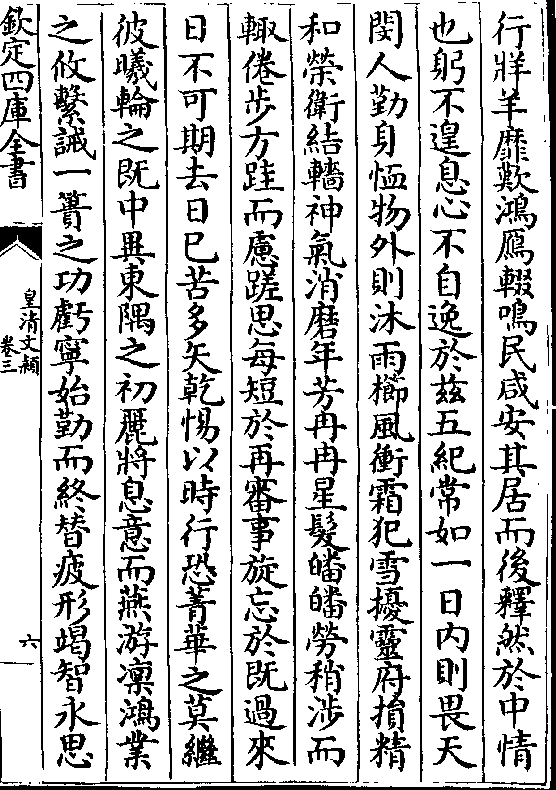 行牂羊靡歎鴻鴈輟鳴民咸安其居而後釋然於中情
也躬不遑息心不自逸於兹五紀常如一日内則畏天
閔人勤身恤物外則沐雨櫛風衝霜犯雪擾靈府揹精
和榮衛結轖神氣消磨年芳冉冉星髮皤皤勞稍涉而
輙倦步方跬而慮蹉思每短於再審事旋忘於既過來
日不可期去日已苦多矢乾惕以時行恐菁華之莫繼
彼曦輪之既中異東隅之初麗將息意而燕游凜鴻業
之攸繫誡一簣之功虧寧始勤而終替疲形竭智永思
欽定四庫全書
皇清文穎
卷三
六